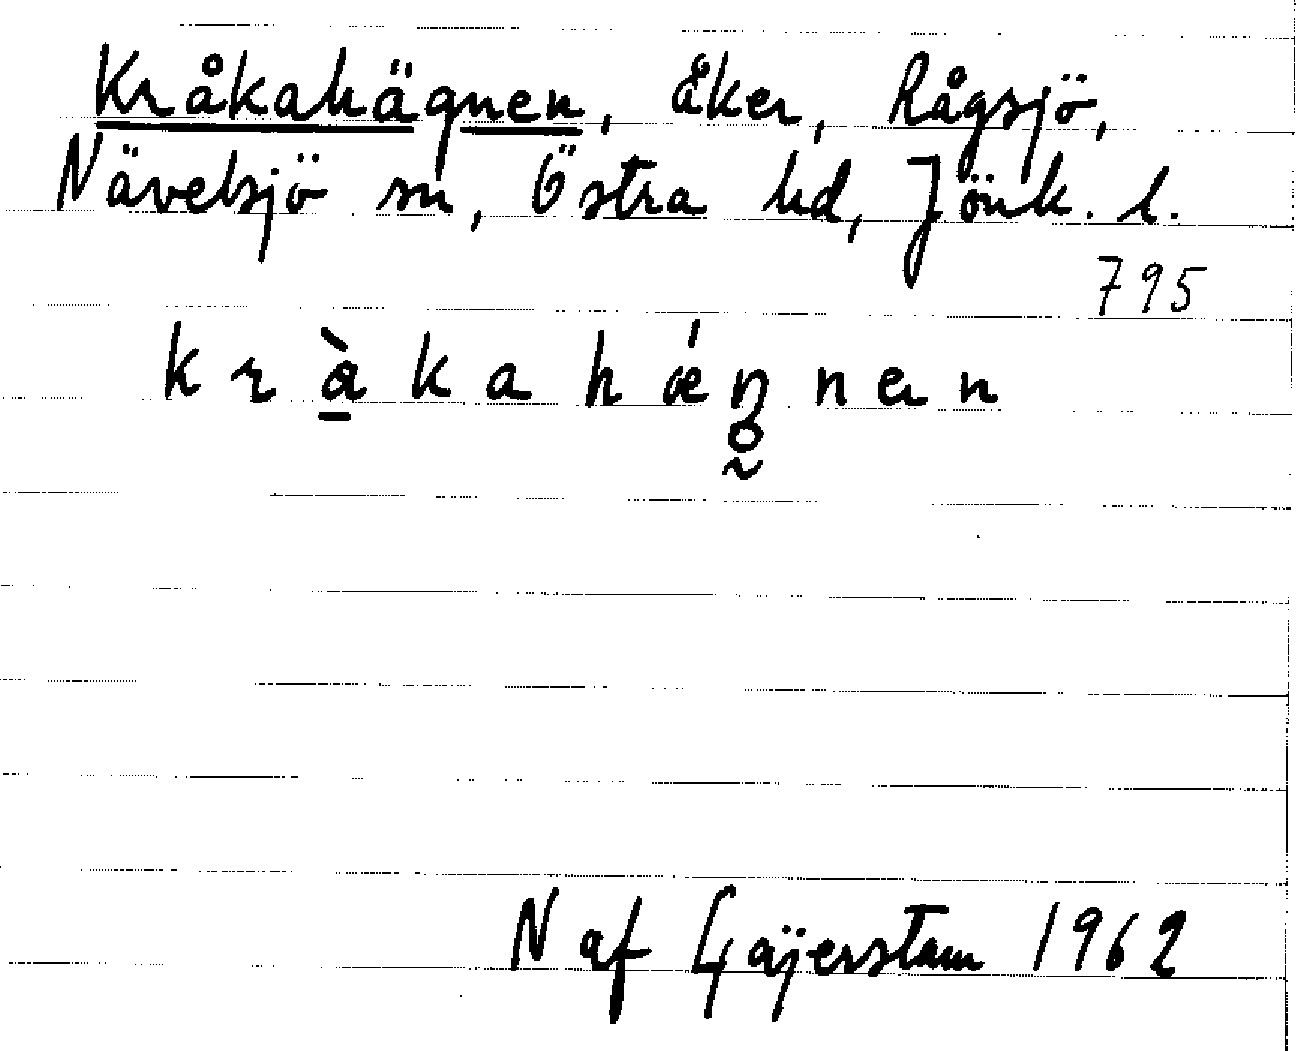 Kråkahägnen, åker, Rågsjö,
Nävelsjö sn, Östra hd, Jönk. l.
795
kràkahǽŋnen
N af Gäjerstam 1962